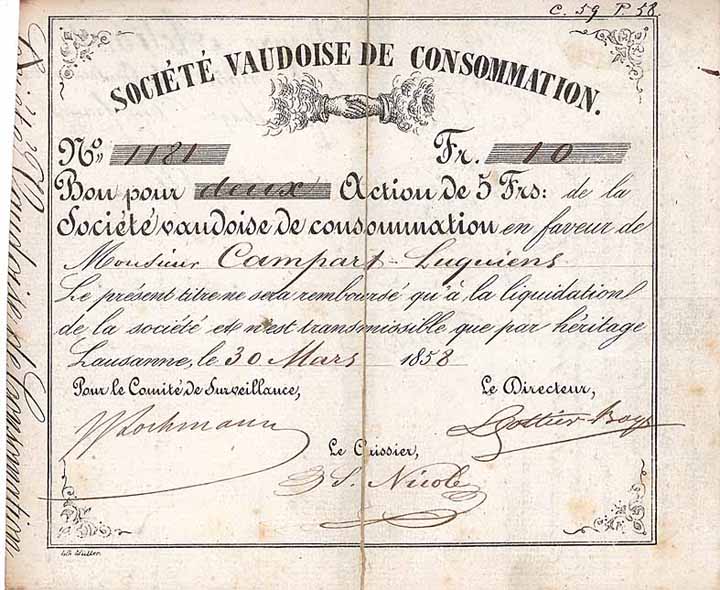 C. 59 P. 58.
SOCIÉTÉ VAUDOISE DE CONSOMMATION.
No. 1181 Fr. 10
Bon pour deux Action de 5 Frs: de la
Société vaudoise de consommation en faveur de
Monsieur Campart-Luquiens
Le présent titre ne sera remboursé qu'à la liquidation
de la société et n'est transmissible que par héritage
Lausanne, le 30 Mars 1858
Pour le Comité de Surveillance, Le Directeur,
Le Caissier,
S. Nicole
Société Vaudoise de Consomation